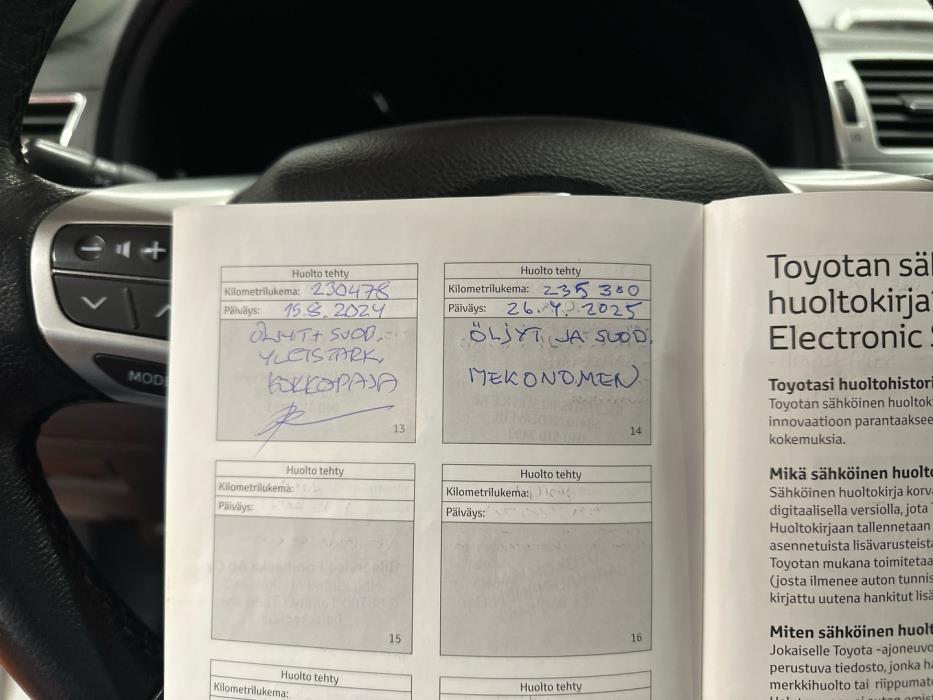 MODE
Huolto tehty
Kilometrilukema: 230478
Päiväys: 15.8.2024
ÖLJYT + SUOD.
YLEISTARK,
KOKKOPAJA
13
Huolto tehty
Kilometrilukema: 235 380
Päiväys: 26.4.2025
ÖLJYT JA SUOD.
MEKONOMEN
14
Huolto tehty
Kilometrilukema:
Päiväys:
15
Huolto tehty
Kilometrilukema:
Päiväys:
16
Huolto tehty
Kilometrilukema:
Huolto tehty
Toyotan säh
huoltokirja
Electronic S
Toyotasi huoltohistori
Toyotan sähköinen huoltoki
innovaatioon parantaakse
kokemuksia.
Mikä sähköinen huolto
Sähköinen huoltokirja korva
digitaalisella versiolla, jota T
Huoltokirjaan tallennetaan
asennetuista lisävarusteista
Toyotan mukana toimitetaa
(josta ilmenee auton tunnis
kirjattu uutena hankitut lisä
Miten sähköinen huolt
Jokaiselle Toyota -ajoneuvo
perustuva tiedosto, jonka ha
merkkihuolto tai riippumato